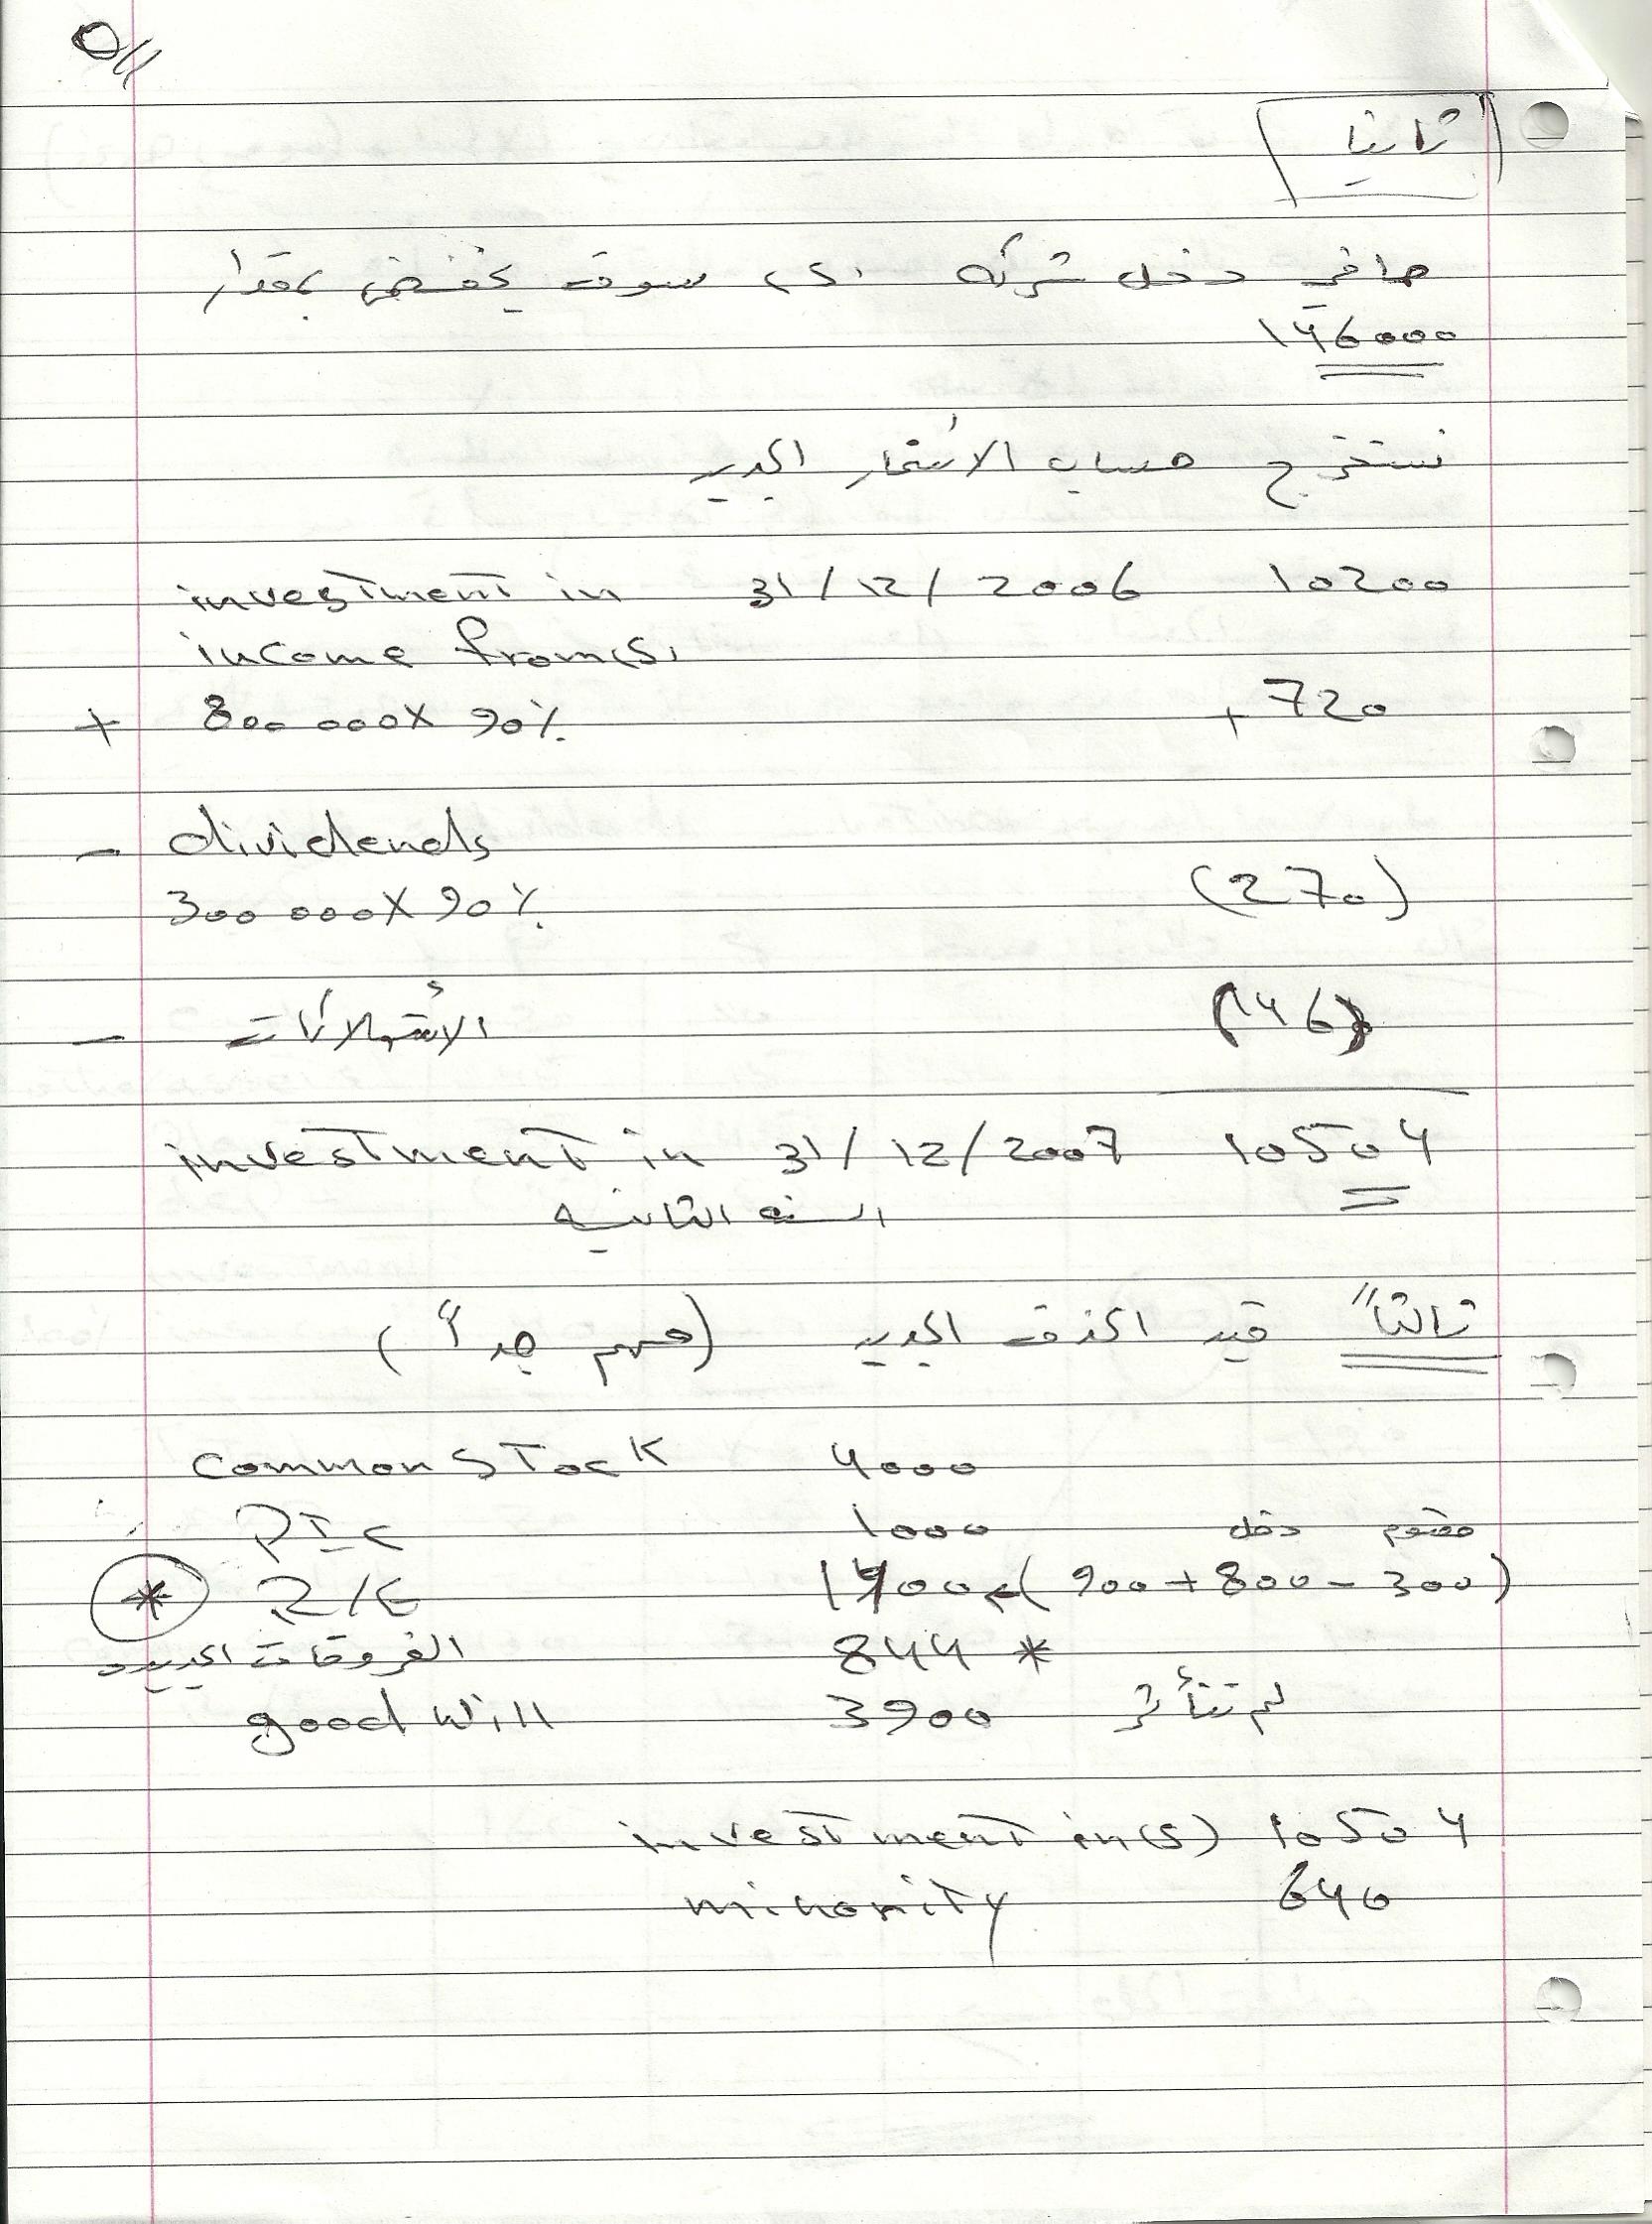 ثانيا
صافي دخل شركة سوف يخفض بمقدار
146000
نستخرج حساب الاستثمار الجديد
investment in 31/12/2006 10200
income from(s)
+ 800 000 X 90% + 720
- dividends
300 000 X 90% (270)
- الاستهلاكات (146)
investment in 31/12/2007 10504
السنة الثانية
ثالثاً قيد الحذف الجديد (مهم جداً)
common STock 4000
PIC 1000 دخل
* R/E 1400 (900 + 800 - 300)
الفروقات الجديدة 844 *
good Will 3900 لم تتأثر
investment in(s) 10504
minority 640